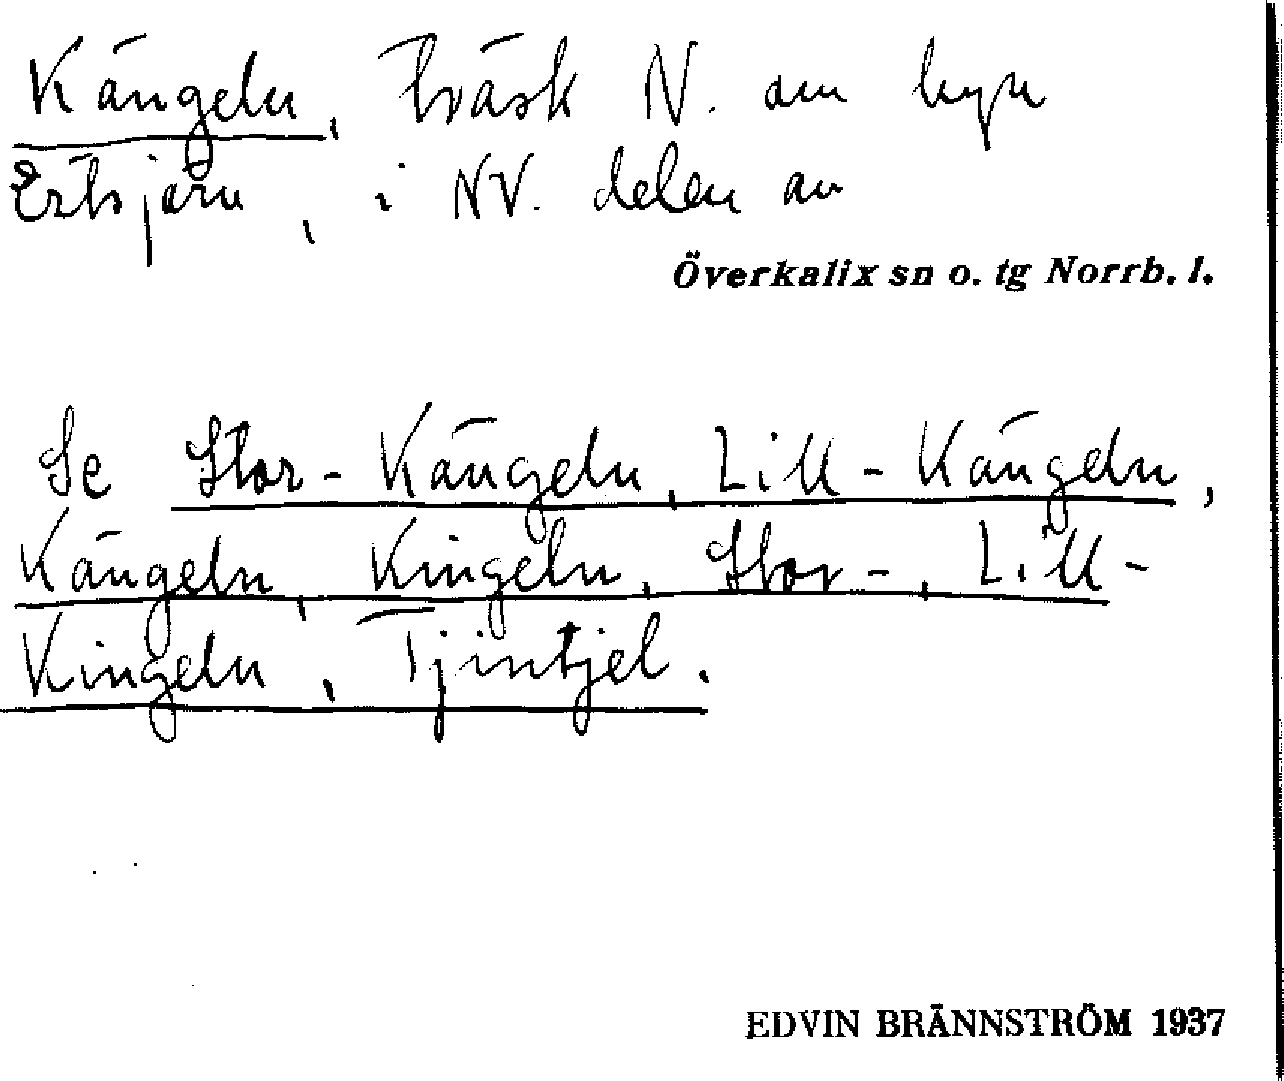 Kängeln, träsk N. om byn
Ertsjärv, i NV. delen av
Överkalix sn o. tg Norrb. l.
Se Stor-Kängeln, Lill-Kängeln,
Kängeln, Kingeln, Stor-, Lill-
Kingeln, Tjintjel.
EDVIN BRÄNNSTRÖM 1937